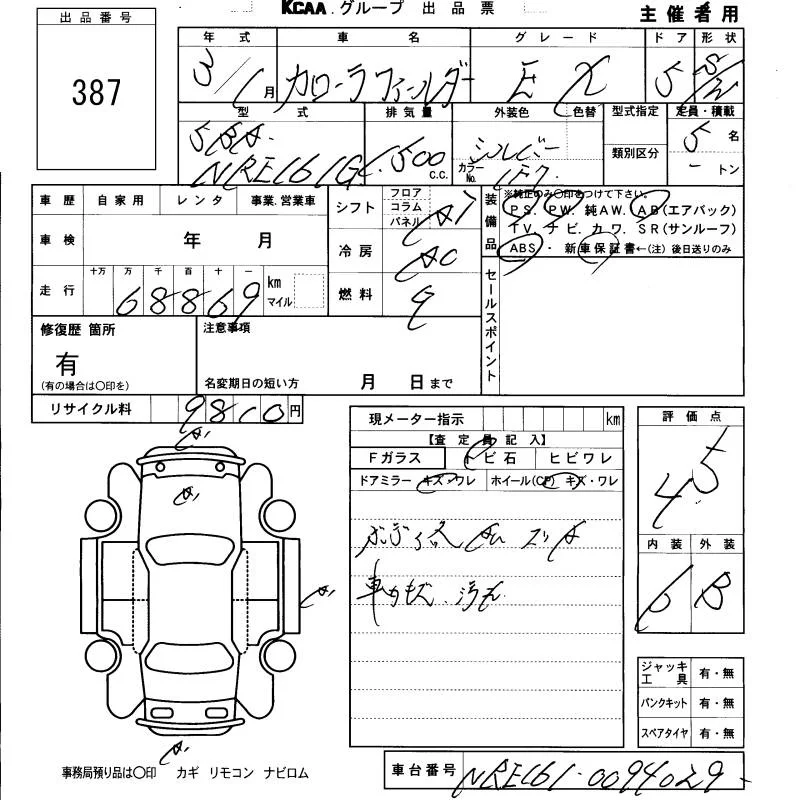 KCAA.グループ 出品票
主催者用
出品番号
387
年式 車名 グレード ドア 形状
3/1月 カローラフィールダー EX 5 S/W
型式 排気量 外装色 色替 型式指定 定員・積載
5BA- 1,500 c.c. シルバー 類別区分 5名
NRE161G カラーNo. 1F7 -トン
車歴 自家用 レンタ 事業.営業車
シフト フロア コラム パネル AT
装備品 ※純正のみ〇印をつけて下さい。
PS. PW. 純AW. AB(エアバック)
TV. ナビ. カワ. SR(サンルーフ)
ABS・ 新車保証書←(注) 後日送りのみ
車検 年 月
冷房 AC
走行 十万 万 千 百 十 一 km マイル
68869
燃料 G
セールスポイント
修復歴 箇所
有
(有の場合は〇印を)
注意事項
名変期日の短い方 月 日まで
リサイクル料 9810円
現メーター指示 km
【査定員記入】
Fガラス トビ石 ヒビワレ
ドアミラー キズ・ワレ ホイール(CP) キズ・ワレ
評価点
4.5
内装 外装
6 B
A1
A1
A1
A1
ジャッキ工具 有・無
パンクキット 有・無
スペアタイヤ 有・無
事務局預り品は〇印 カギ リモコン ナビロム
車台番号 NRE161-0094029-